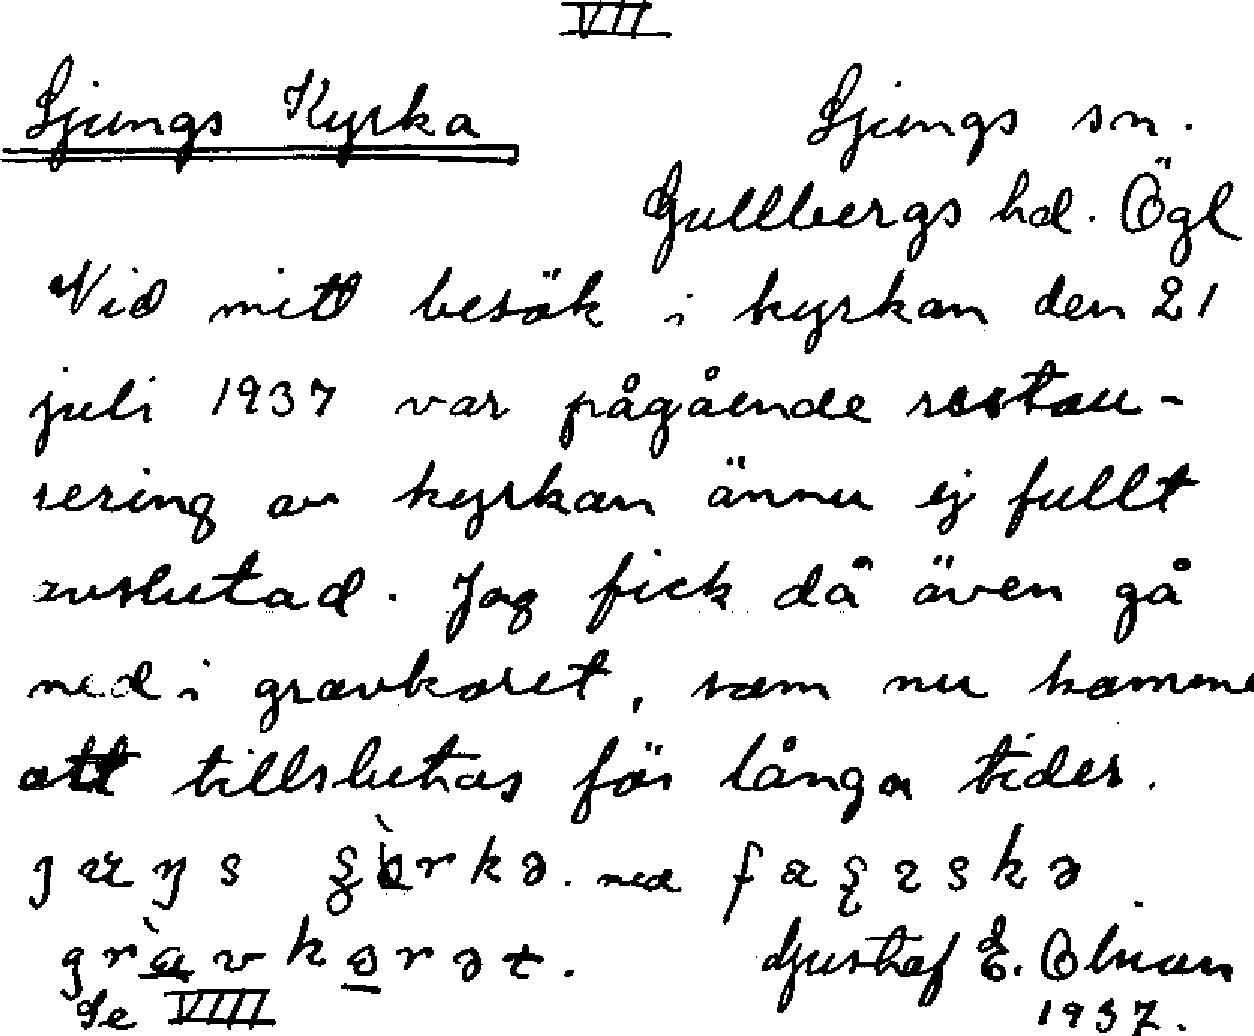 VII
Ljungs Kyrka
Ljungs sn.
Gullbergs hd. Ögl
Vid mitt besök i kyrkan den 21
juli 1937 var pågående restau-
rering av kyrkan ännu ej fullt
avslutad. Jag fick då även gå
ned i gravkoret, som nu komme
att tillslutas för långa tider.
ned
Gustaf E.
Se VIII
1937.